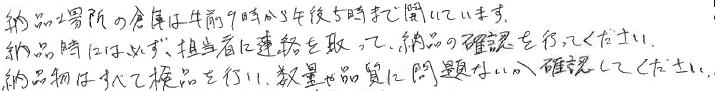 納品場所の倉庫は午前9時から午後5時まで開いています。
納品時には必ず、担当者に連絡を取って、納品の確認を行ってください。
納品物はすべて検品を行い、数量や品質に問題ないか確認してください。